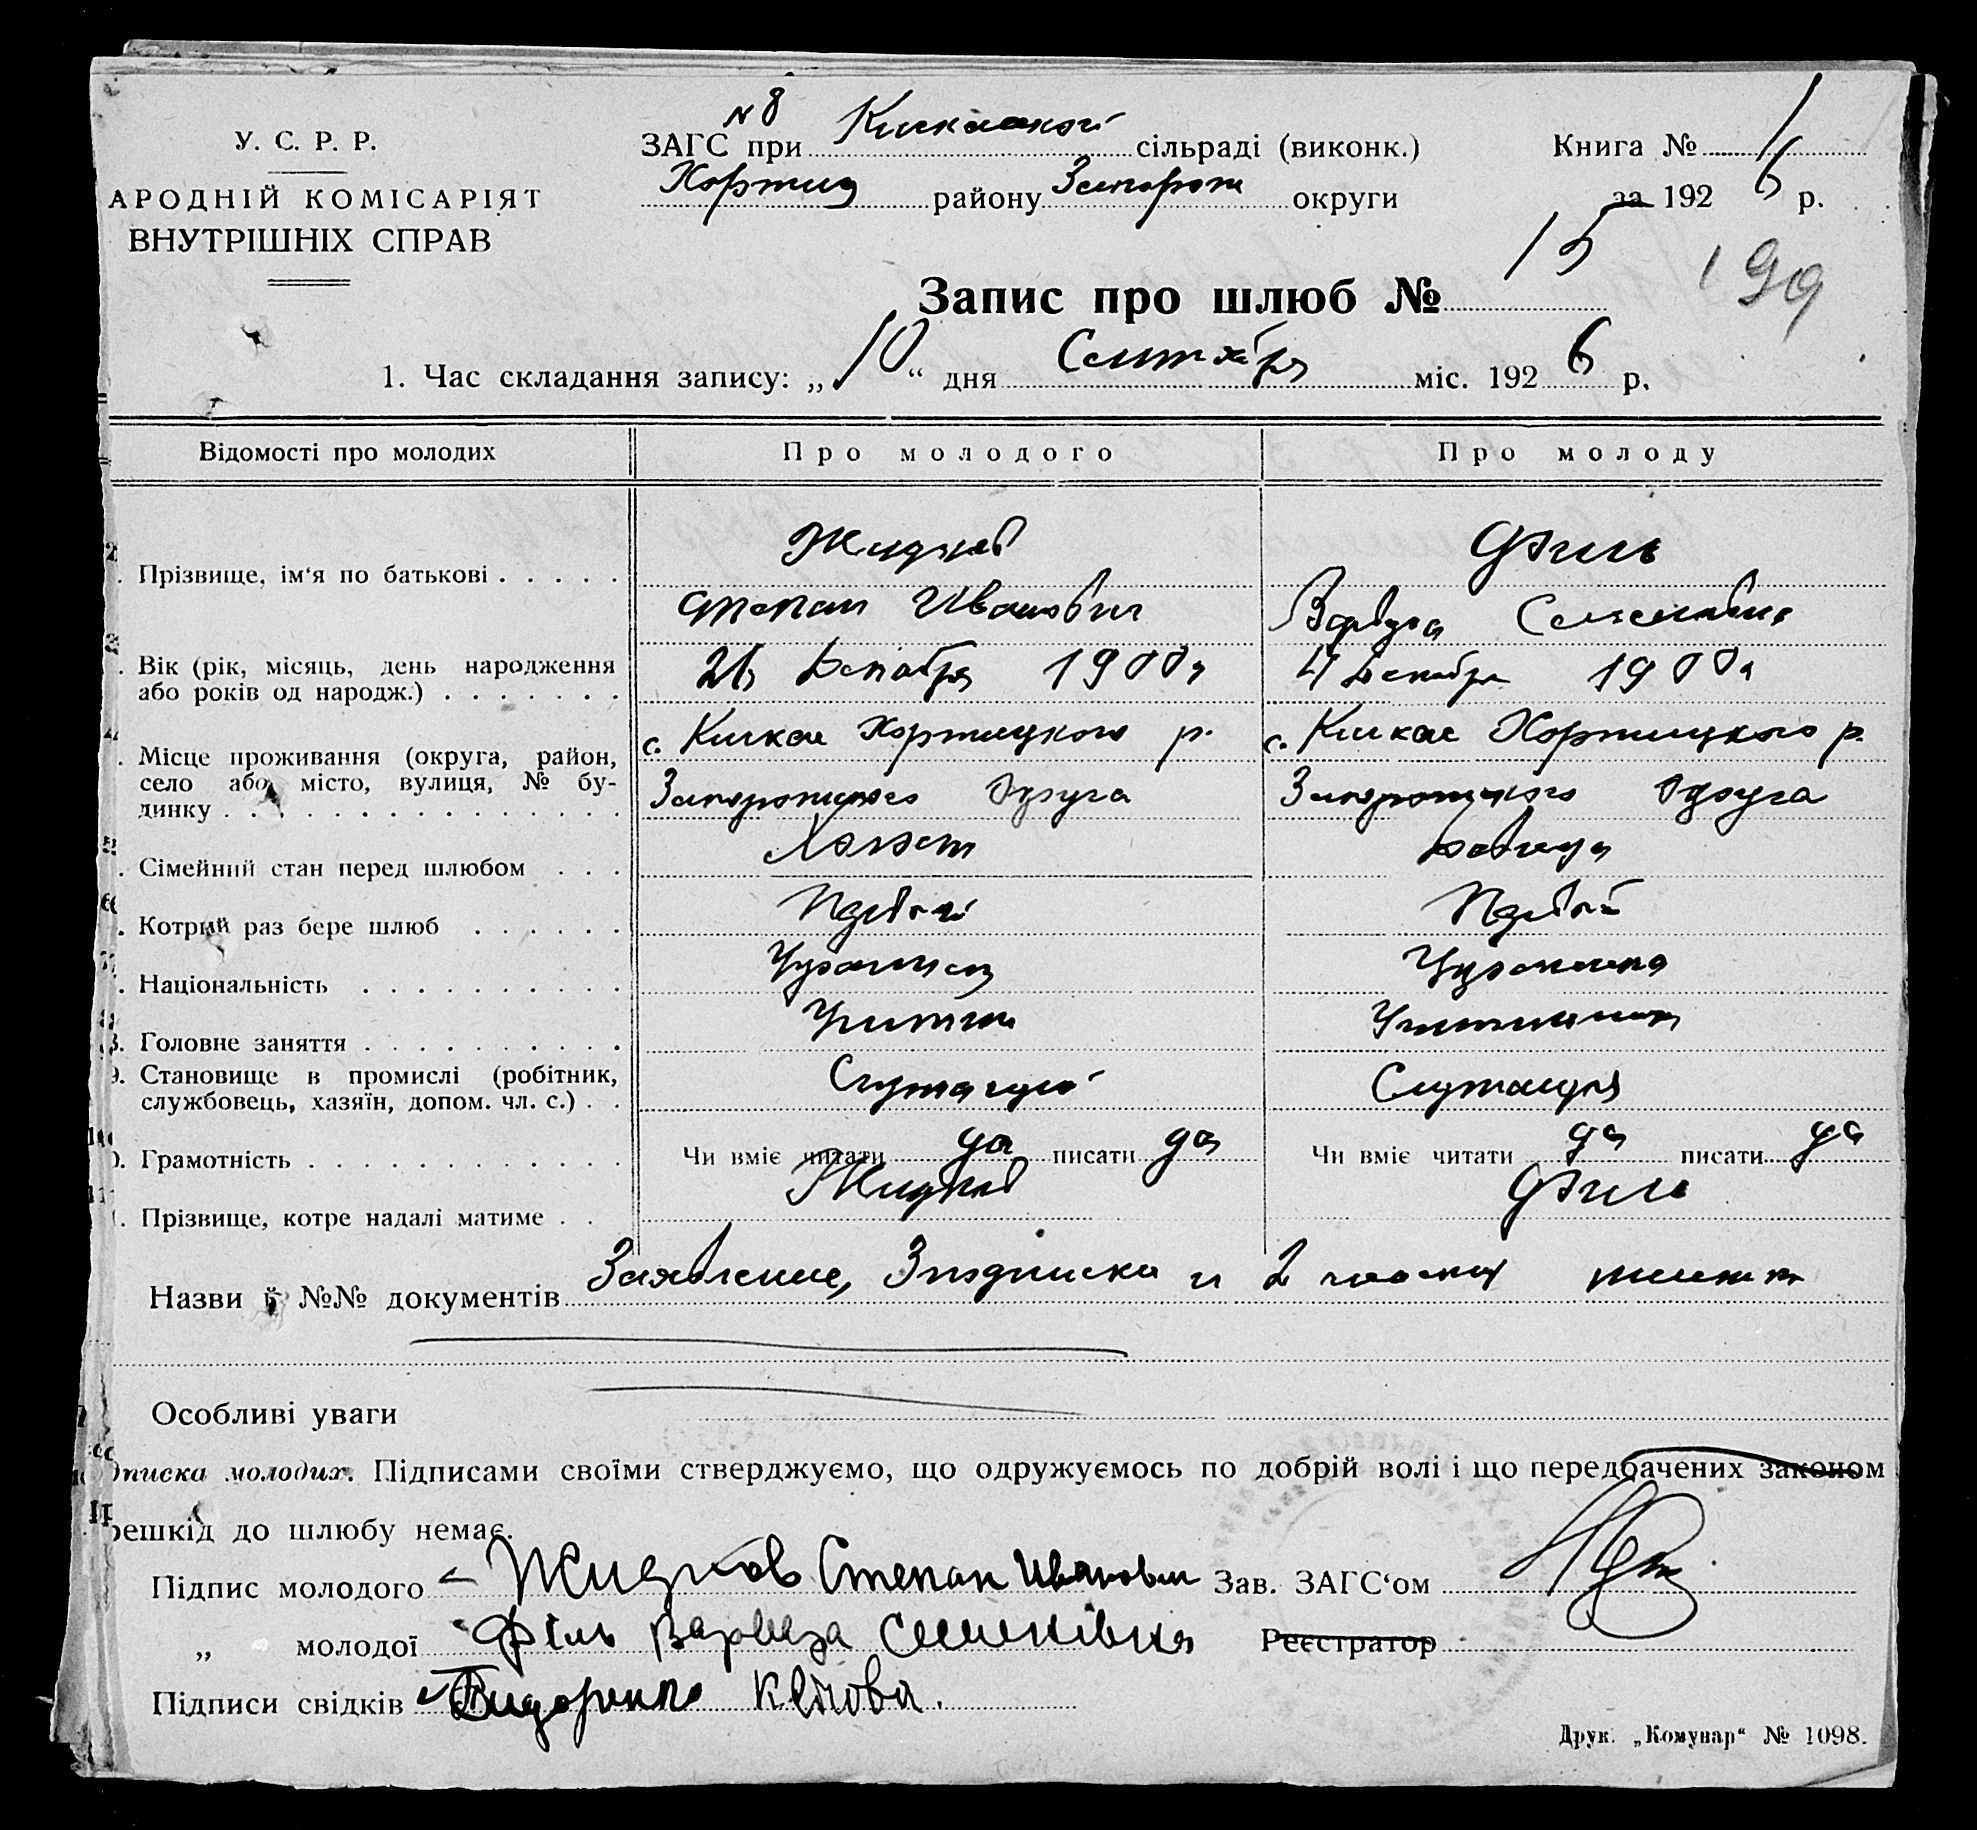 У. С. Р. Р.
АРОДНІЙ КОМІСАРІЯТ
ВНУТРІШНІХ СПРАВ
№ 8
ЗАГС при Кичкасской сільраді (виконк.)
Хортиц району Запорож округи
Книга № 1
за 1926 р.
Запис про шлюб № 15
199
1. Час складання запису: „10“ дня Сентября міс. 1926 р.
Відомості про молодих Про молодого Про молоду
Прізвище, ім‘я по батькові Жидков Філь
Степан Иванович Варвара Семеновна
Вік (рік, місяць, день народження
або років од народж.) Декабря 1900 4 Декабря 1900
Місце проживання (округа, район,
село або місто, вулиця, № бу-
динку
с. Кичкас Хортицкого р. с. Кичкас Хортицкого р.
Запорожского Округа Запорожского Округа
Сімейний стан перед шлюбом Холост Девица
Котрий раз бере шлюб Первый Первый
Національність Украинец Украинка
8. Головне заняття Учитель Учительница
9. Становище в промислі (робітник,
службовець, хазяїн, допом. чл. с.) Служащий Служащая
Грамотність Чи вміє читати да писати да Чи вміє читати да писати да
Прізвище, котре надалі матиме Жидков Філь
Назви й №№ документів Заявление, и 2
Особливі уваги
дписка молодих. Підписами своїми стверджуємо, що одружуємось по добрій волі і що передбачених законом
решкід до шлюбу немає.
Підпис молодого Жидков Степан Иванович Зав. ЗАГС‘ом
„ молодої Філь Варвара Семенівна Реєстратор
Підписи свідків
Друк. „Комунар“ № 1098.